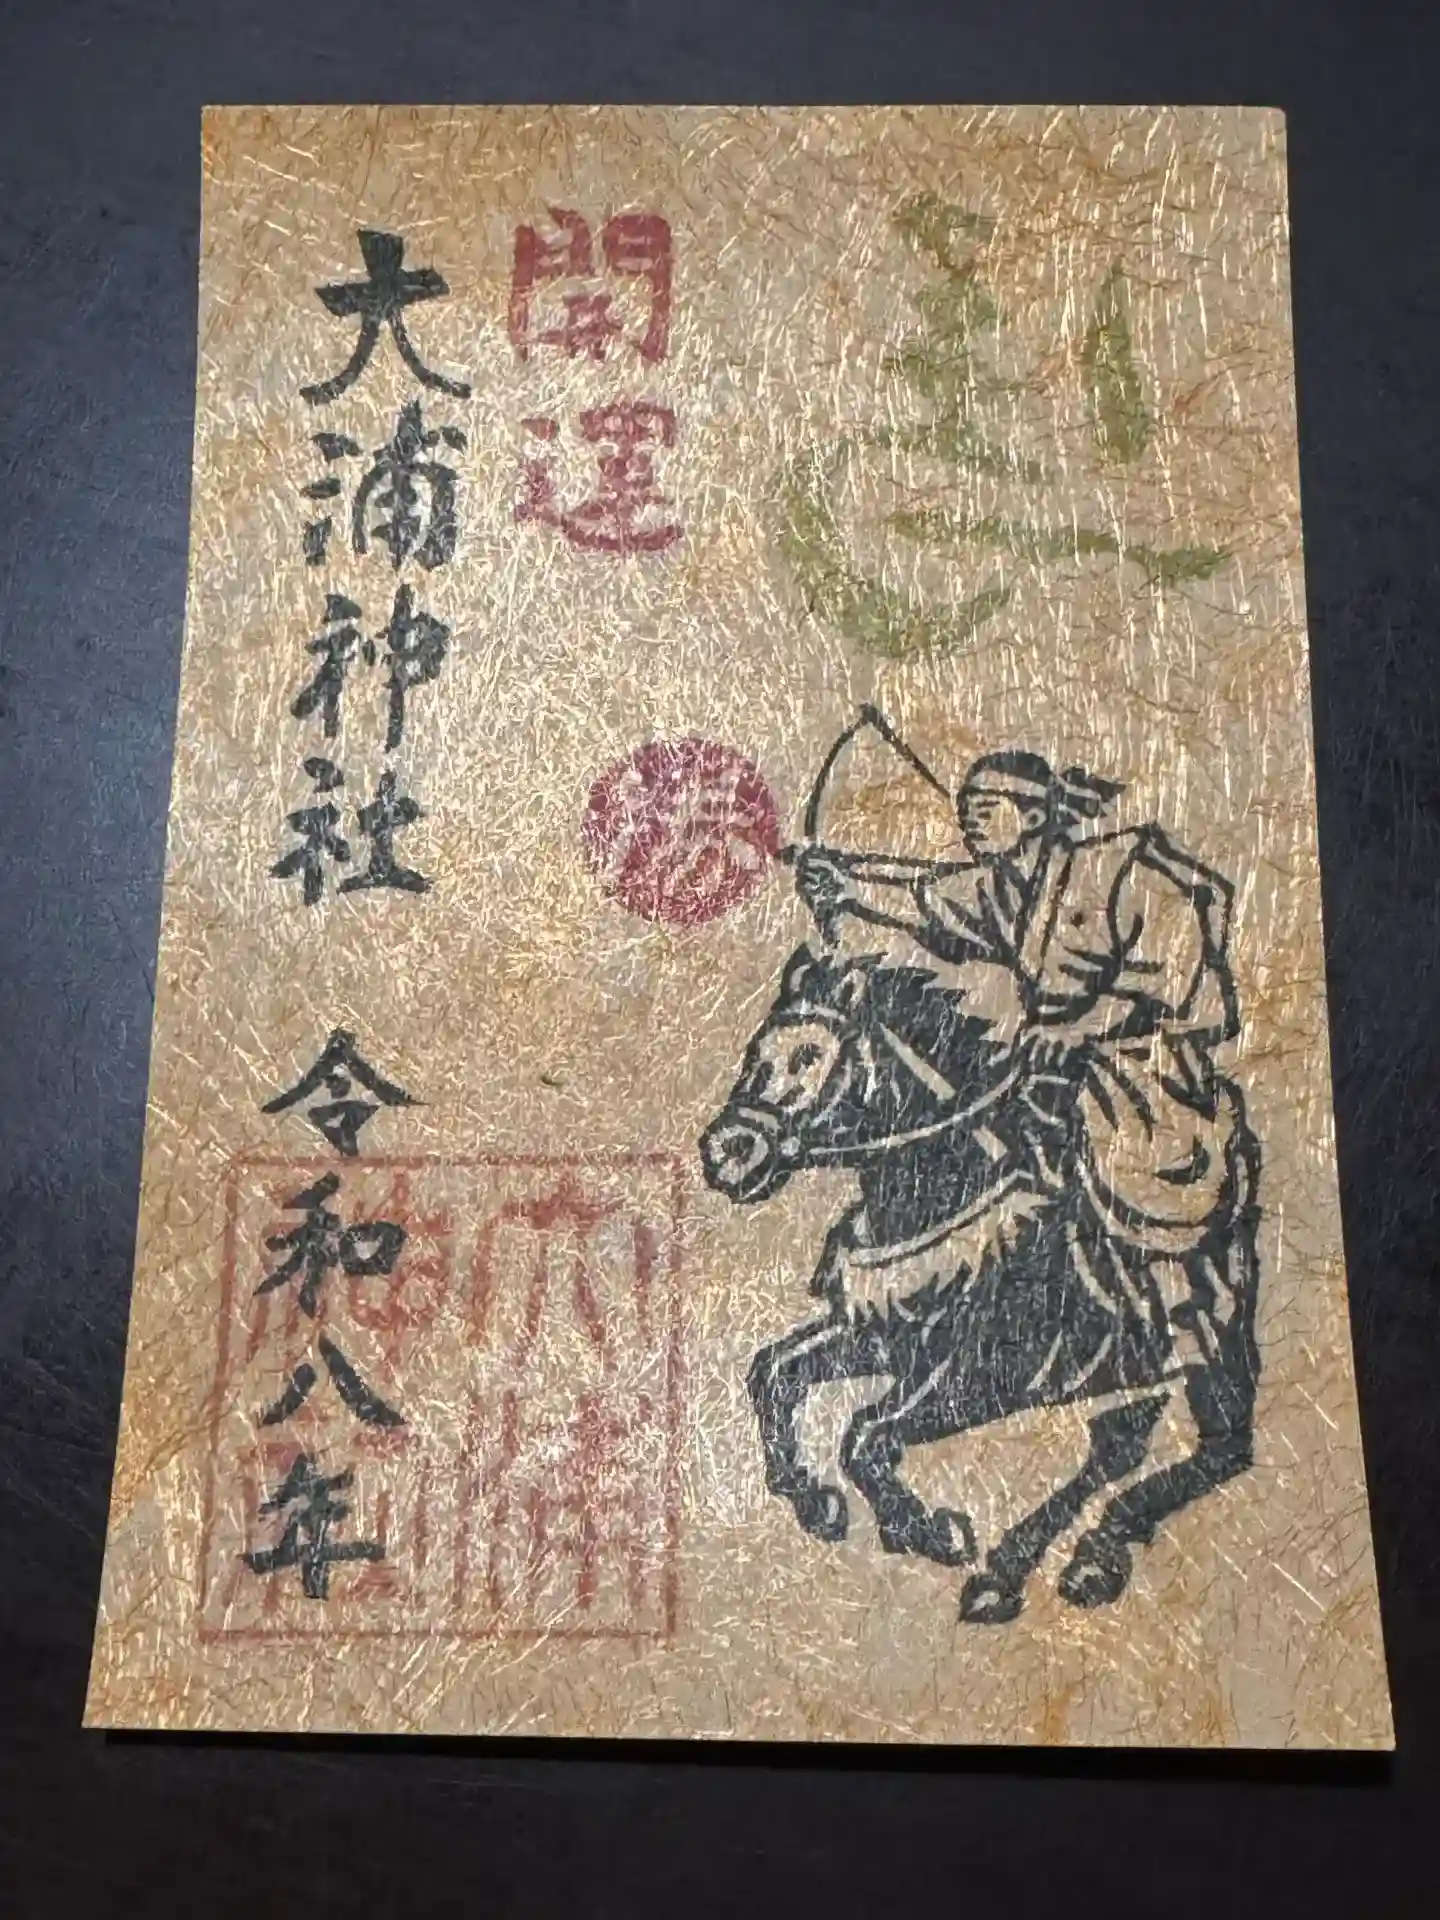 開運
勝
大浦神社 令和八年
大浦
神社